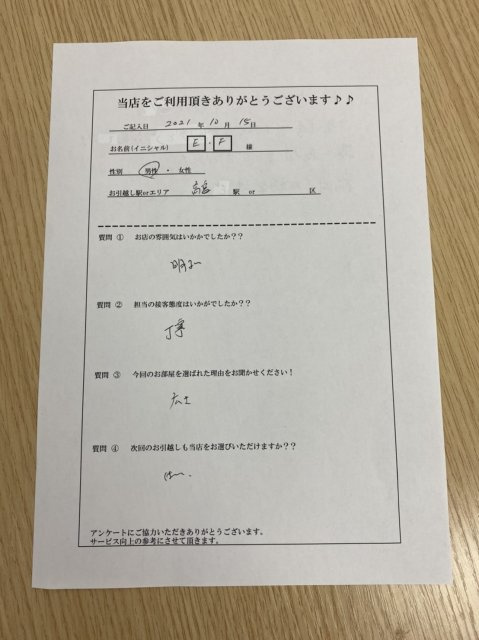 当店をご利用頂きありがとうございます♪♪
ご記入日 2021 年 10 月 15 日
お名前(イニシャル) E ・ F 様
性別 男性 ・ 女性
お引越し駅orエリア 駅 or 区
質問 ① お店の雰囲気はいかかでしたか??
明るい
質問 ② 担当の接客態度はいかがでしたか??
丁寧
質問 ③ 今回のお部屋を選ばれた理由をお聞かせください!
広さ
質問 ④ 次回のお引越しも当店をお選びいただけますか??
はい.
アンケートにご協力いただきありがとうございます。
サービス向上の参考にさせて頂きます。